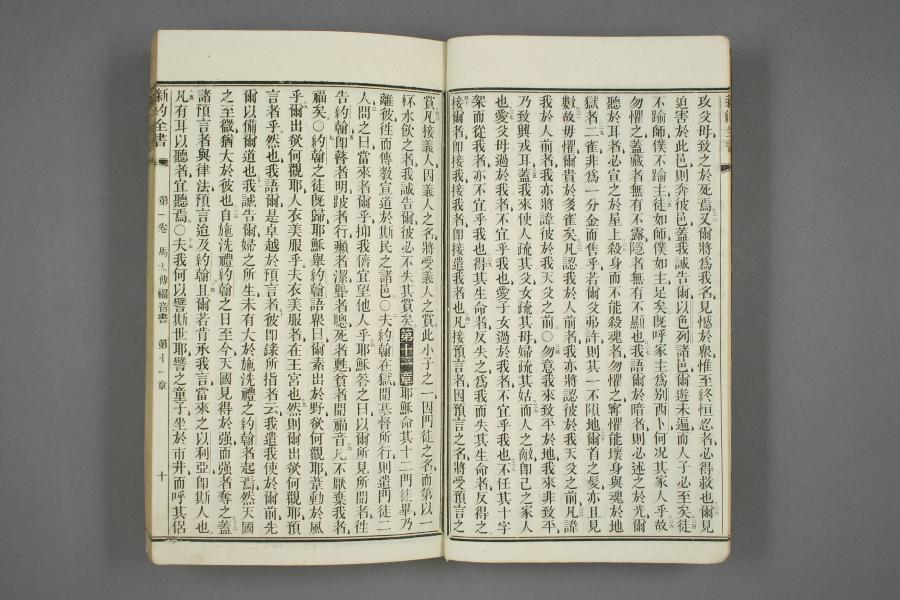 攻父母致之於死焉又爾將爲我名見憾於衆惟至終恒忍者必得救也爾見
迫害於此邑則奔彼邑蓋我誠告爾以色列諸邑爾遊未遍而人子必至矣徒
不踰師僕不踰主徒如師僕如主足矣旣呼家主爲別西卜何况其家人乎故
勿懼之蓋藏者無有不露隱者無有不顯也我語爾於暗者則必述之於光爾
聽於耳者必宣之於屋上殺身而不能殺魂者勿懼之寧懼能壞身與魂於地
獄者二雀非爲一分金而售乎若爾父弗許則其一不隕地爾首之髮亦且見
數故毋懼爾貴於多雀矣凡認我於人前者我亦將認彼於我天父之前凡諱
我於人前者我亦將諱彼於我天父之前○勿意我來致平於地我來非致平
乃致興戎耳蓋我來使人疏其父女疏其母婦疏其姑而人之敵卽己之家人
也愛父母過於我者不宜乎我也愛子女過於我者不宜乎我也不任其十字
架而從我者亦不宜乎我也得其生命者反失之爲我而失其生命者反得之
接爾者卽接我接我者卽接遣我者也凡接預言者因預言之名將受預言之
賞凡接義人因義人之名將受義人之賞此小子之一因門徒之名而第以一
杯水飮之者我誠告爾彼必不失其賞矣第十一章耶穌命其十二門徒畢乃
離彼徃而傳教宣道於斯民之諸邑○夫約翰在獄聞基督所行則遣門徒二
人問之曰當來者爾乎抑我儕宜望他人乎耶穌答之曰以爾所見所聞者徃
告約翰卽瞽者明跛者行癩者潔聾者聰死者甦貧者聞福音凡不厭棄我者
福矣○約翰之徒旣歸耶穌舉約翰語衆曰爾素出於野欲何觀耶葦動於風
乎爾出欲何觀耶人衣美服乎夫衣美服者在王宮也然則爾出欲何觀耶預
言者乎然也我語爾是卓越於預言者彼卽錄所指者云我遣我使於爾前先
爾以備爾道也我誠告爾婦之所生未有大於施洗禮之約翰者起焉然天國
之至微猶大於彼也自施洗禮約翰之日至今天國見得於强而强者奪之蓋
諸預言者與律法預言迨及約翰且爾若肯承我言當來之以利亞卽斯人也
凡有耳以聽者宜聽焉○夫我何以譬斯世耶譬之童子坐於市井而呼其侶
新約全書 第一卷 馬太傳福音書 第十一章 十